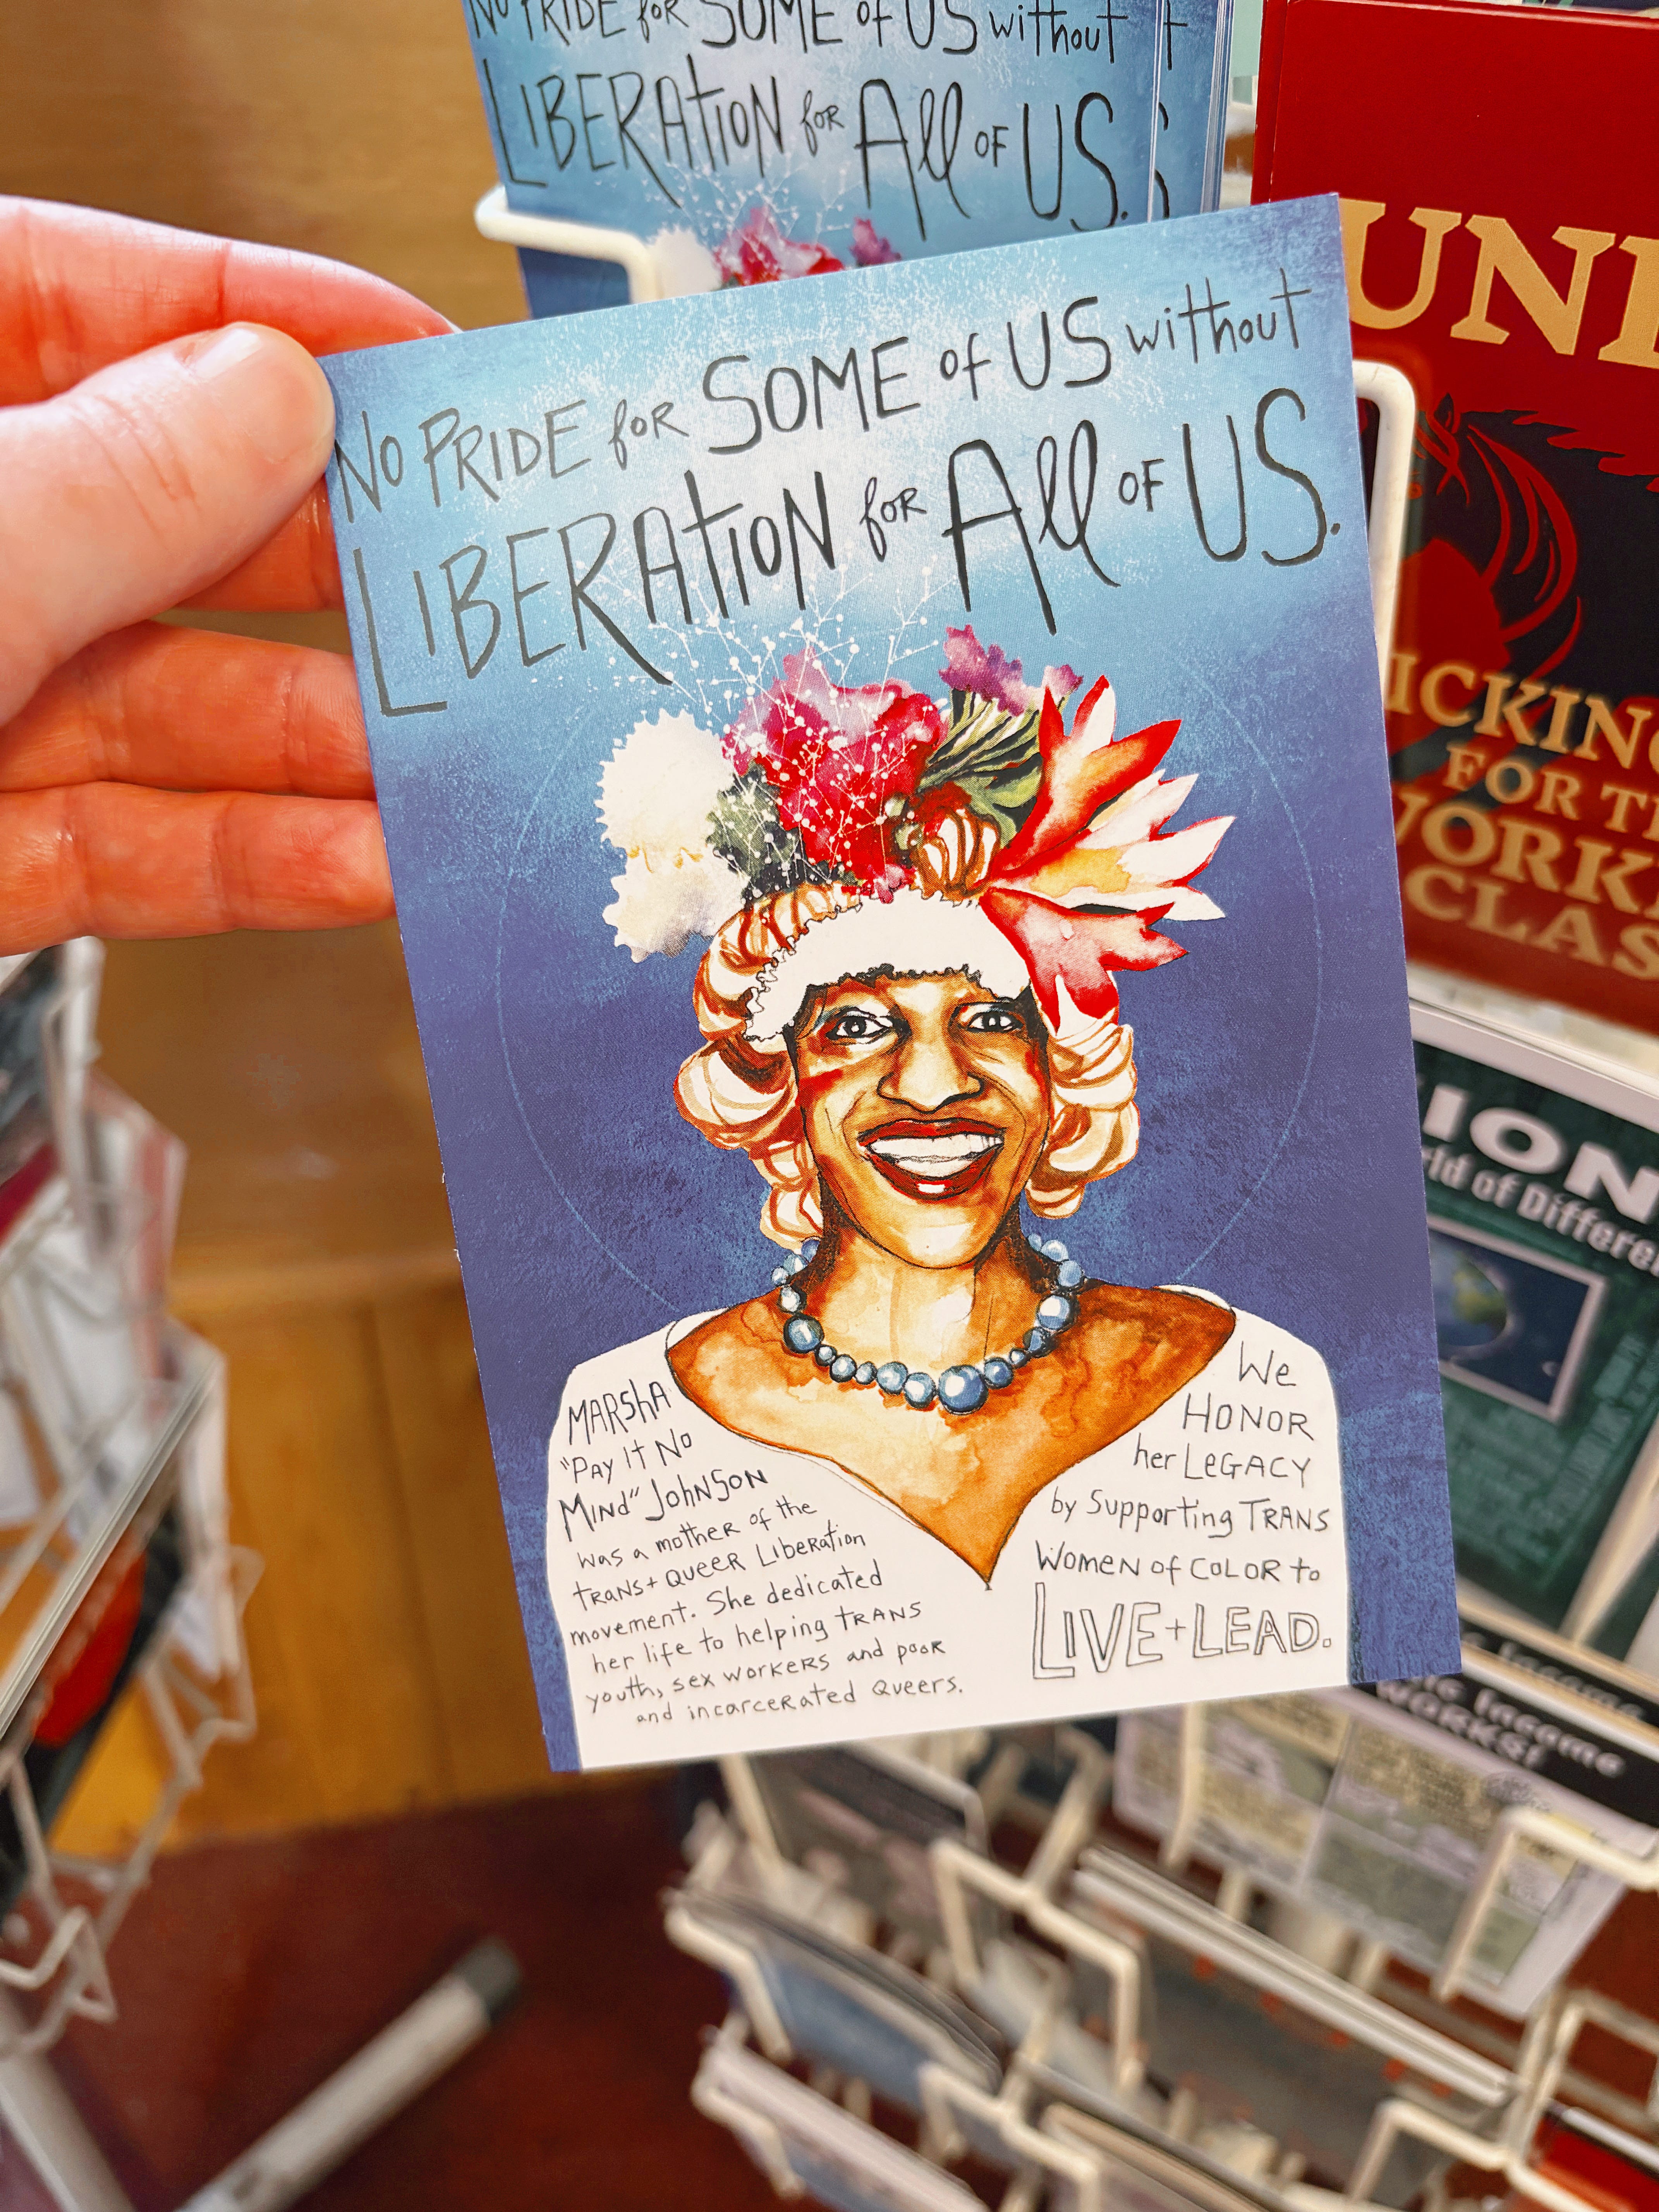 No PRIDE for SOME of US without
LIBERATION for All OF US.
No PRIDE for SOME of US without
LIBERATION for All OF US.
MARShA
"PAY IT No
MIND" JohNSON
was a motheR of the
tRANS+ QUEER LIBeRAtion
movement. She dedicated
her life to helping tRANS
youth, sex woRkeRS and pooR
and incarceRated Queers.
We
HONOR
her LeGACY
by Supporting TRANS
WOMEN of COLOR to
LIVE + LEAD.
FOR
CLAS
ION
of Differe
Income
WORKS!